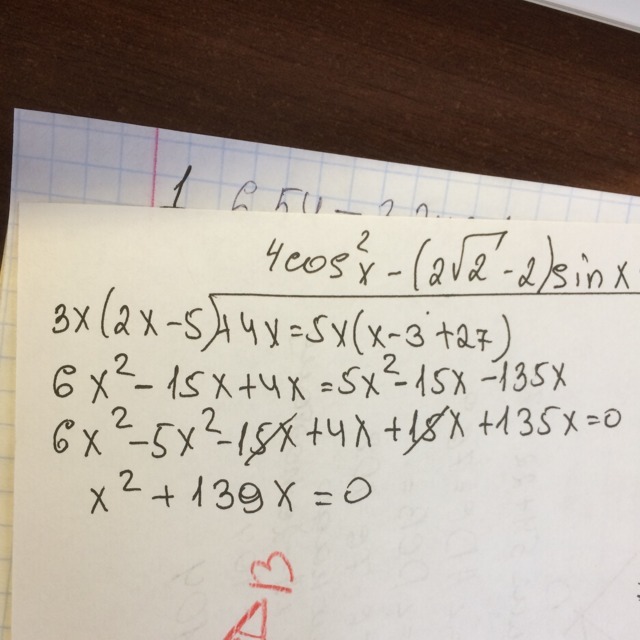 4cos²x - (2√2 - 2)sinx
3x(2x-5)+4x=5x(x-3+27)
6x²-15x+4x=5x²-15x-135x
6x²-5x²-15x+4x+15x+135x=0
x²+139x=0
AB